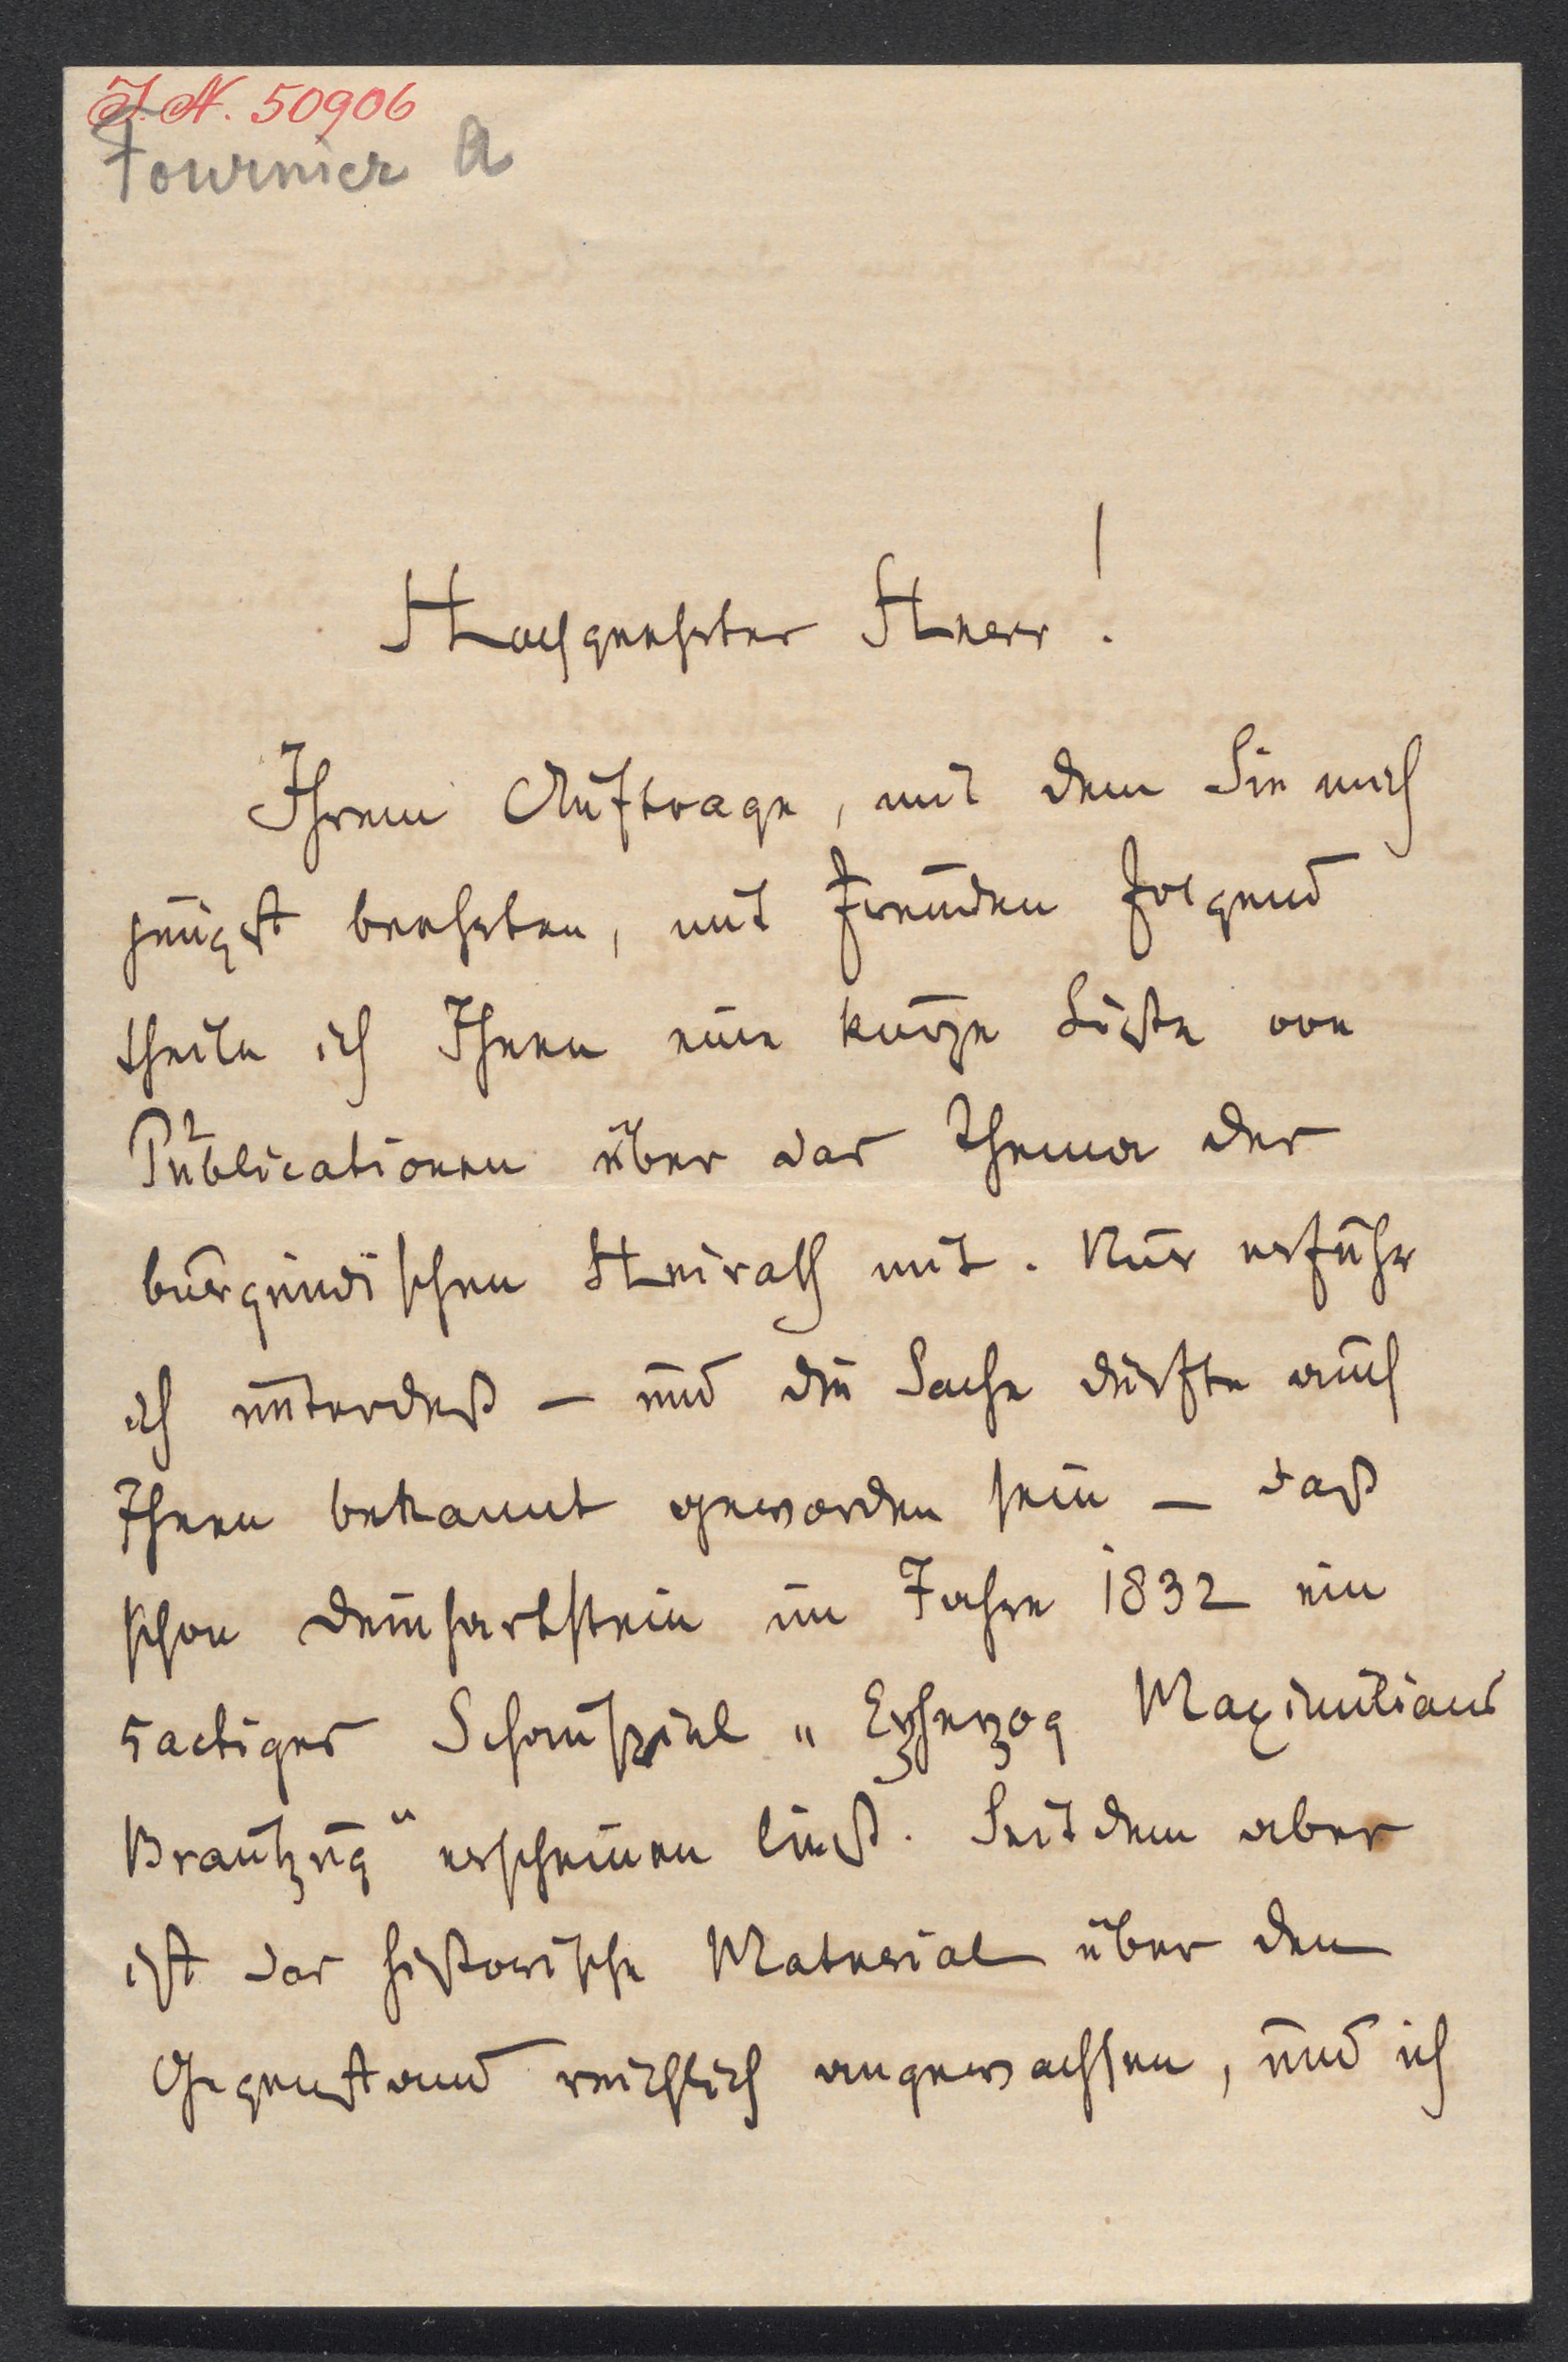 I. N. 50906
Fournier A
Hochgeehrter Herr!
Ihrem Auftrage, mit dem Sie mich
jüngst beehrten, mit Freuden folgend
theile ich Ihnen eine kurze Liste von
Publicationen über das Thema der
burgundischen Heirath mit. Nur erfuhr
ich unterdeß – und die Sache dürfte auch
Ihnen bekannt geworden sein – daß
schon Deinhartstein im Jahre 1832 ein
5actiges Schauspiel „Erzherzog Maximilians
Brautzug" erscheinen ließ. Seitdem aber
ist das historische Material über den
Gegenstand reichlich angewachsen, und ich